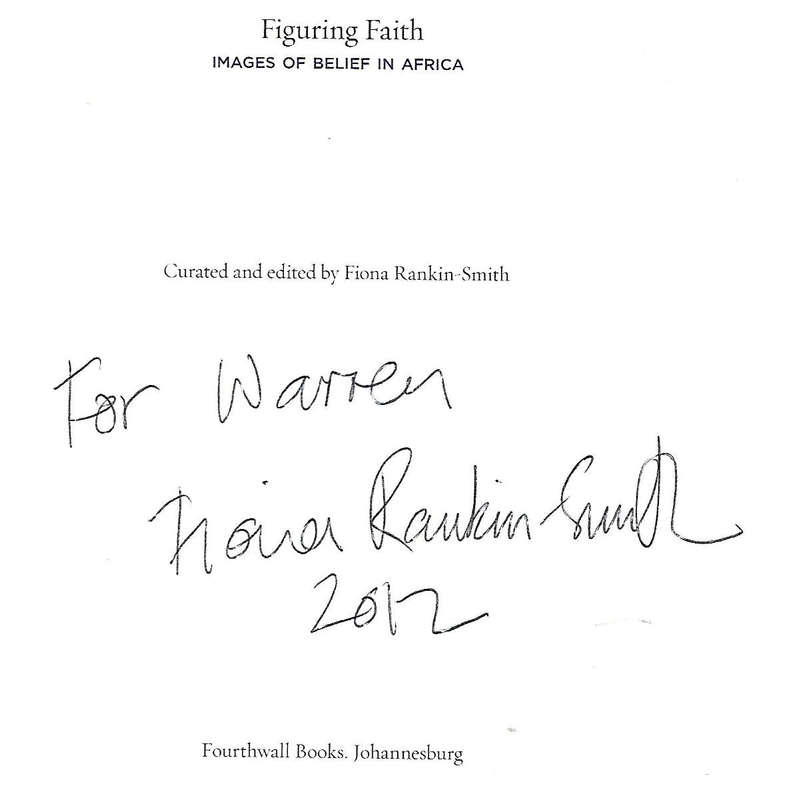 Figuring Faith
IMAGES OF BELIEF IN AFRICA
Curated and edited by Fiona Rankin-Smith
For Warren
Fiona Rankin-Smith
2012
Fourthwall Books. Johannesburg